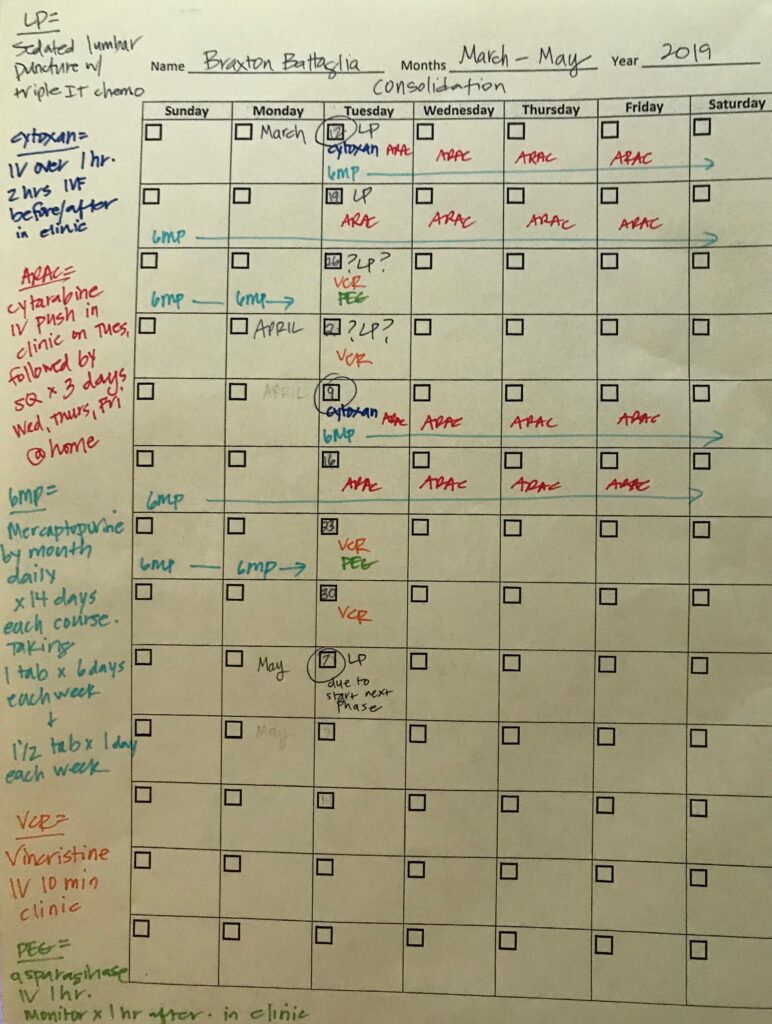 LP=
Sedated lumbar
puncture w/
triple IT chemo
Name Braxton Battaglia Months March - May Year 2019
Consolidation
Sunday Monday Tuesday Wednesday Thursday Friday Saturday
March 12 LP
cytoxan ARAC ARAC ARAC ARAC
6MP
19 LP
ARAC ARAC ARAC ARAC
6MP
26 ?LP?
VCR
6MP 6MP PEG
APRIL 2 ?LP?
VCR
APRIL 9
cytoxan ARAC ARAC ARAC ARAC
6MP
16
ARAC ARAC ARAC ARAC
6MP
23
VCR
6MP 6MP PEG
30
VCR
May 7 LP
due to
start next
phase
May
cytoxan=
IV over 1 hr.
2 hrs IVF
before/after
in clinic
ARAC=
cytarabine
IV push in
clinic on Tues,
followed by
SQ x 3 days
Wed, Thurs, Fri
@ home
6MP=
Mercaptopurine
by mouth
daily
x 14 days
each course.
Taking
1 tab x 6 days
each week
+
1 1/2 tab x 1 day
each week
VCR=
Vincristine
IV 10 min
clinic
PEG=
asparaginase
IV 1 hr.
Monitor x 1 hr after. in clinic